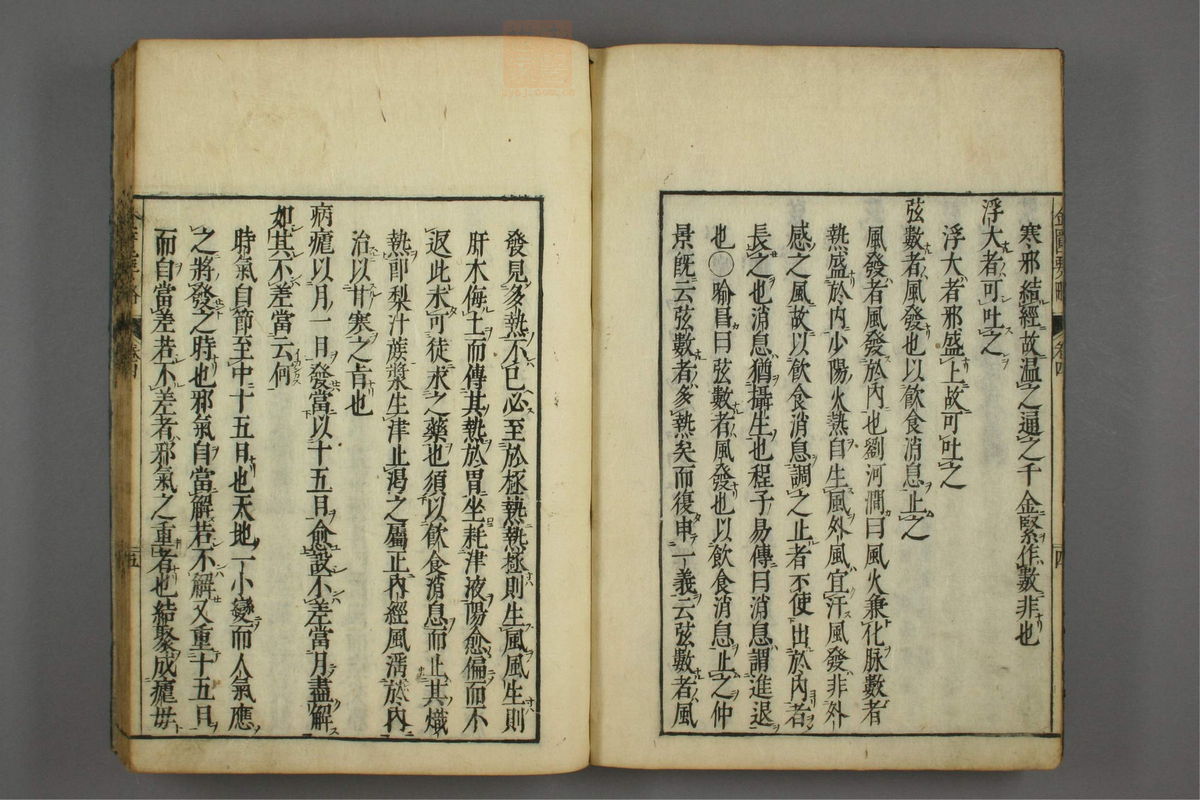 寒邪結經故温之通之千金緊作數非也
浮大者可吐之
浮大者邪盛上故可吐之
弦數者風發也以飲食消息止之
風發者風發於內也劉河澗曰風火兼化脉數者
熱盛於內少陽火熱自生風外風宜汗風發非外
感之風故以飲食消息調之止者不使出於內者
長之也消息猶攝生也程子易傳曰消息謂進退
也〇喻昌曰弦數者風發也以飲食消息止之仲
景既云弦數者多熱矣而復申一義云弦數者風
四
發見多熱不已必至於極熱熱極則生風風生則
肝木侮土而傳其熱於胃坐耗津液陽愈偏而不
返此未可徒求之藥也須以飲食消息而止其熾
熱即梨汁蔗漿生津止渴之屬正內經風淫於內
治以甘寒之旨也
病瘧以月一日發當以十五日愈設不差當月盡解
如其不差當云何
時氣自節至中十五日也天地一小變而人氣應
之將發之時也邪氣自當解若不解又重十五日
而自當差若不差者邪氣之重者也結聚成癥毋
五